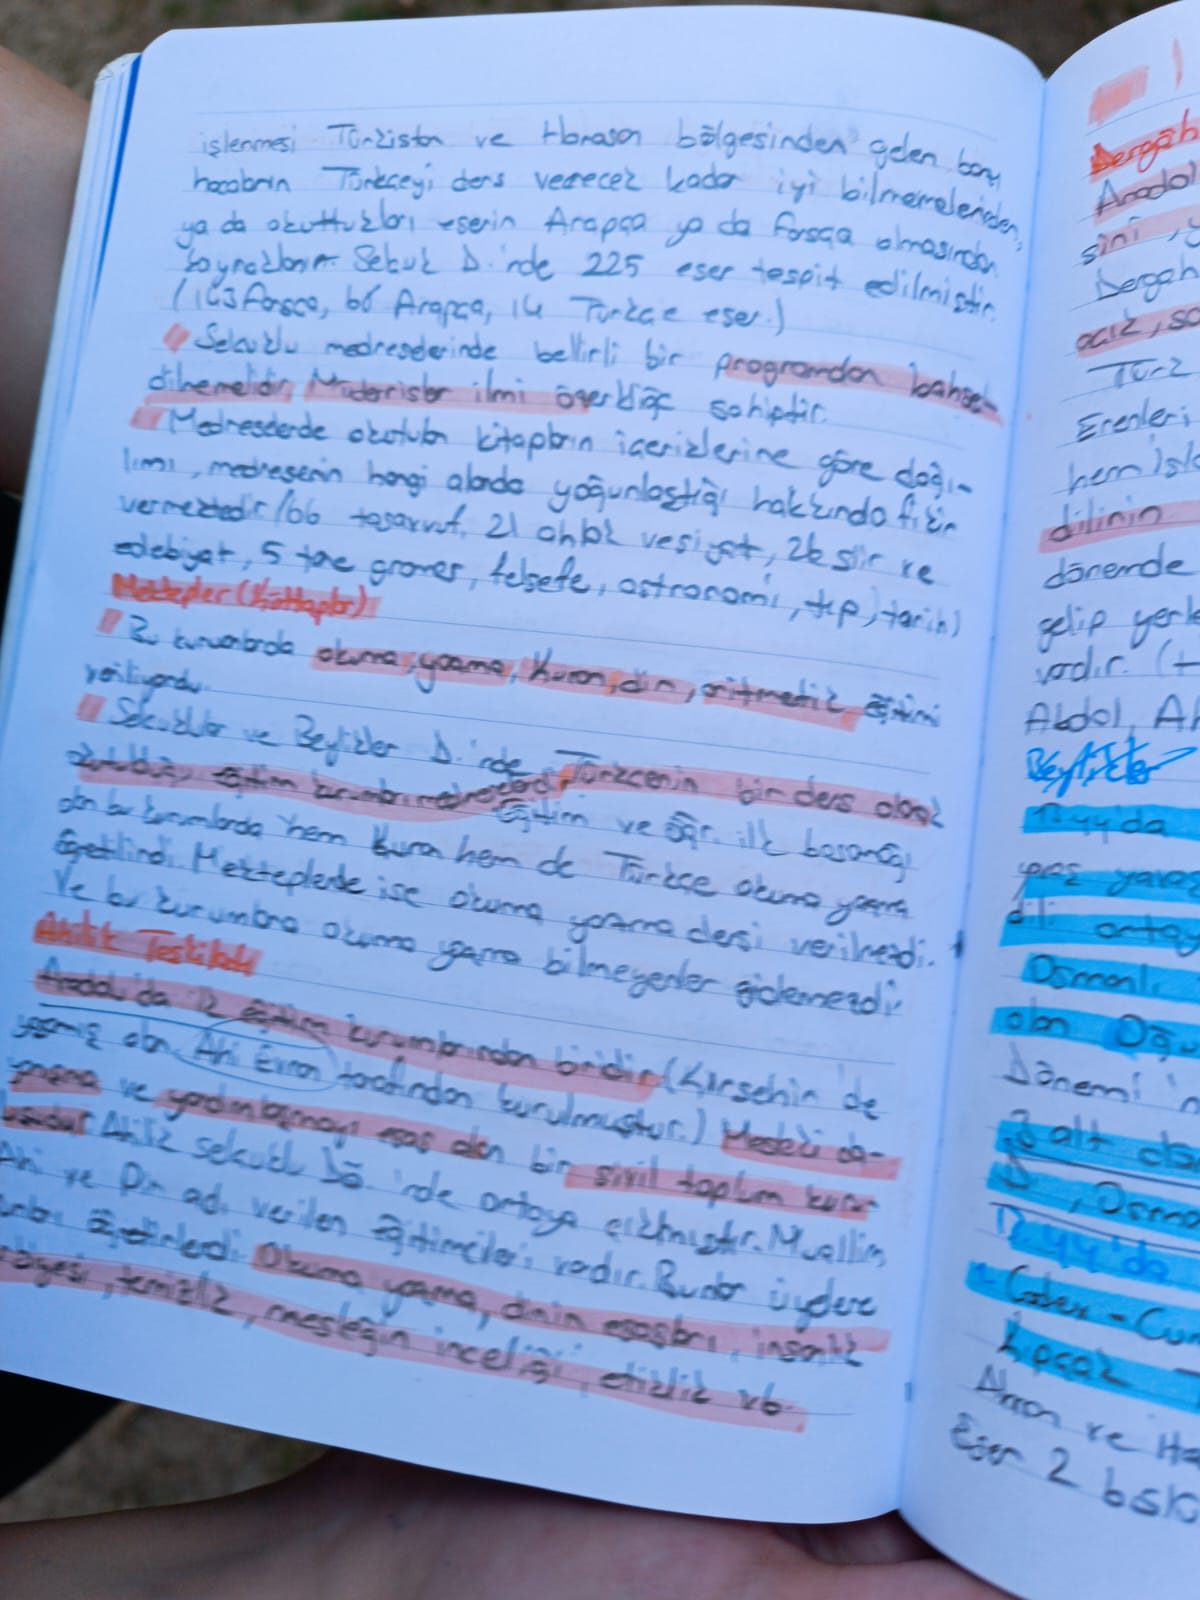 işlenmesi Türkistan ve Horasan bölgesinden gelen bazı
hocaların Türkçeyi ders verecek kadar iyi bilmemelerinden,
ya da okuttukları eserin Arapça ya da farsça olmasından
kaynaklanır. Selçuk D.'nde 225 eser tespit edilmiştir.
(143 farsça, 66 Arapça, 14 Türkçe eser.)
Selçuklu medreselerinde belirli bir programdan bahse-
dilemelidir, Müderrisler ilmi özerkliğe sahiptir.
Medreselerde okutulan kitapların içeriklerine göre dağı-
lımı, medresenin hangi alanda yoğunlaştığı hakkında fikir
vermektedir (66 tasavvuf, 21 ahlak vesiyat, 26 şiir ve
edebiyat, 5 tane gramer, felsefe, astronomi, tıp, tarih)
Mektepler (Küttaplar)
Bu kurumlarda okuma, yazma, Kuran, din, aritmetik eğitimi
veriliyordu.
Selçuklular ve Beylikler D.'nde Türkçenin bir ders olarak
okutulduğu eğitim kurumları medreselerdi. Eğitim ve öğr. ilk basamağı
olan bu kurumlarda hem Kuran hem de Türkçe okuma yazma
öğretilirdi. Mekteplerde ise okuma yazma dersi verilmezdi.
Ve bu kurumlara okuma yazma bilmeyenler gidemezdi.
Ahilik Teşkilatı
Anadolu'da ilk eğitim kurumlarından biridir (Kırşehir'de
yaşamış olan Ahi Evran tarafından kurulmuştur.) Mesleki da-
yanışma ve yardımlaşmayı esas alan bir sivil toplum kuru-
Ahilik selçuklu Dö.'nde ortaya çıkmıştır. Muallim,
Ahi ve Pir adı verilen eğitimcileri vardır. Bunlar üyelere
eğitirlerdi. Okuma yazma, dinin esasları, insanlık
temizlik, mesleğin inceliği, etkilik vb.
Dergâh
Anadol
sini, y
Dergah
açık, so
Türk
Erenleri
hem İsl
dilinin
dönemde
gelip yerle
vardır. (
Abdal, A
Beylikler
13. yy'da
yavaş
dili ortay
Osmanlı
olan Oğu
Dönemi
3 alt da
D, Osma
13. yy'da
Codex-Cu
Kıpçak T
Alman ve
Eser 2